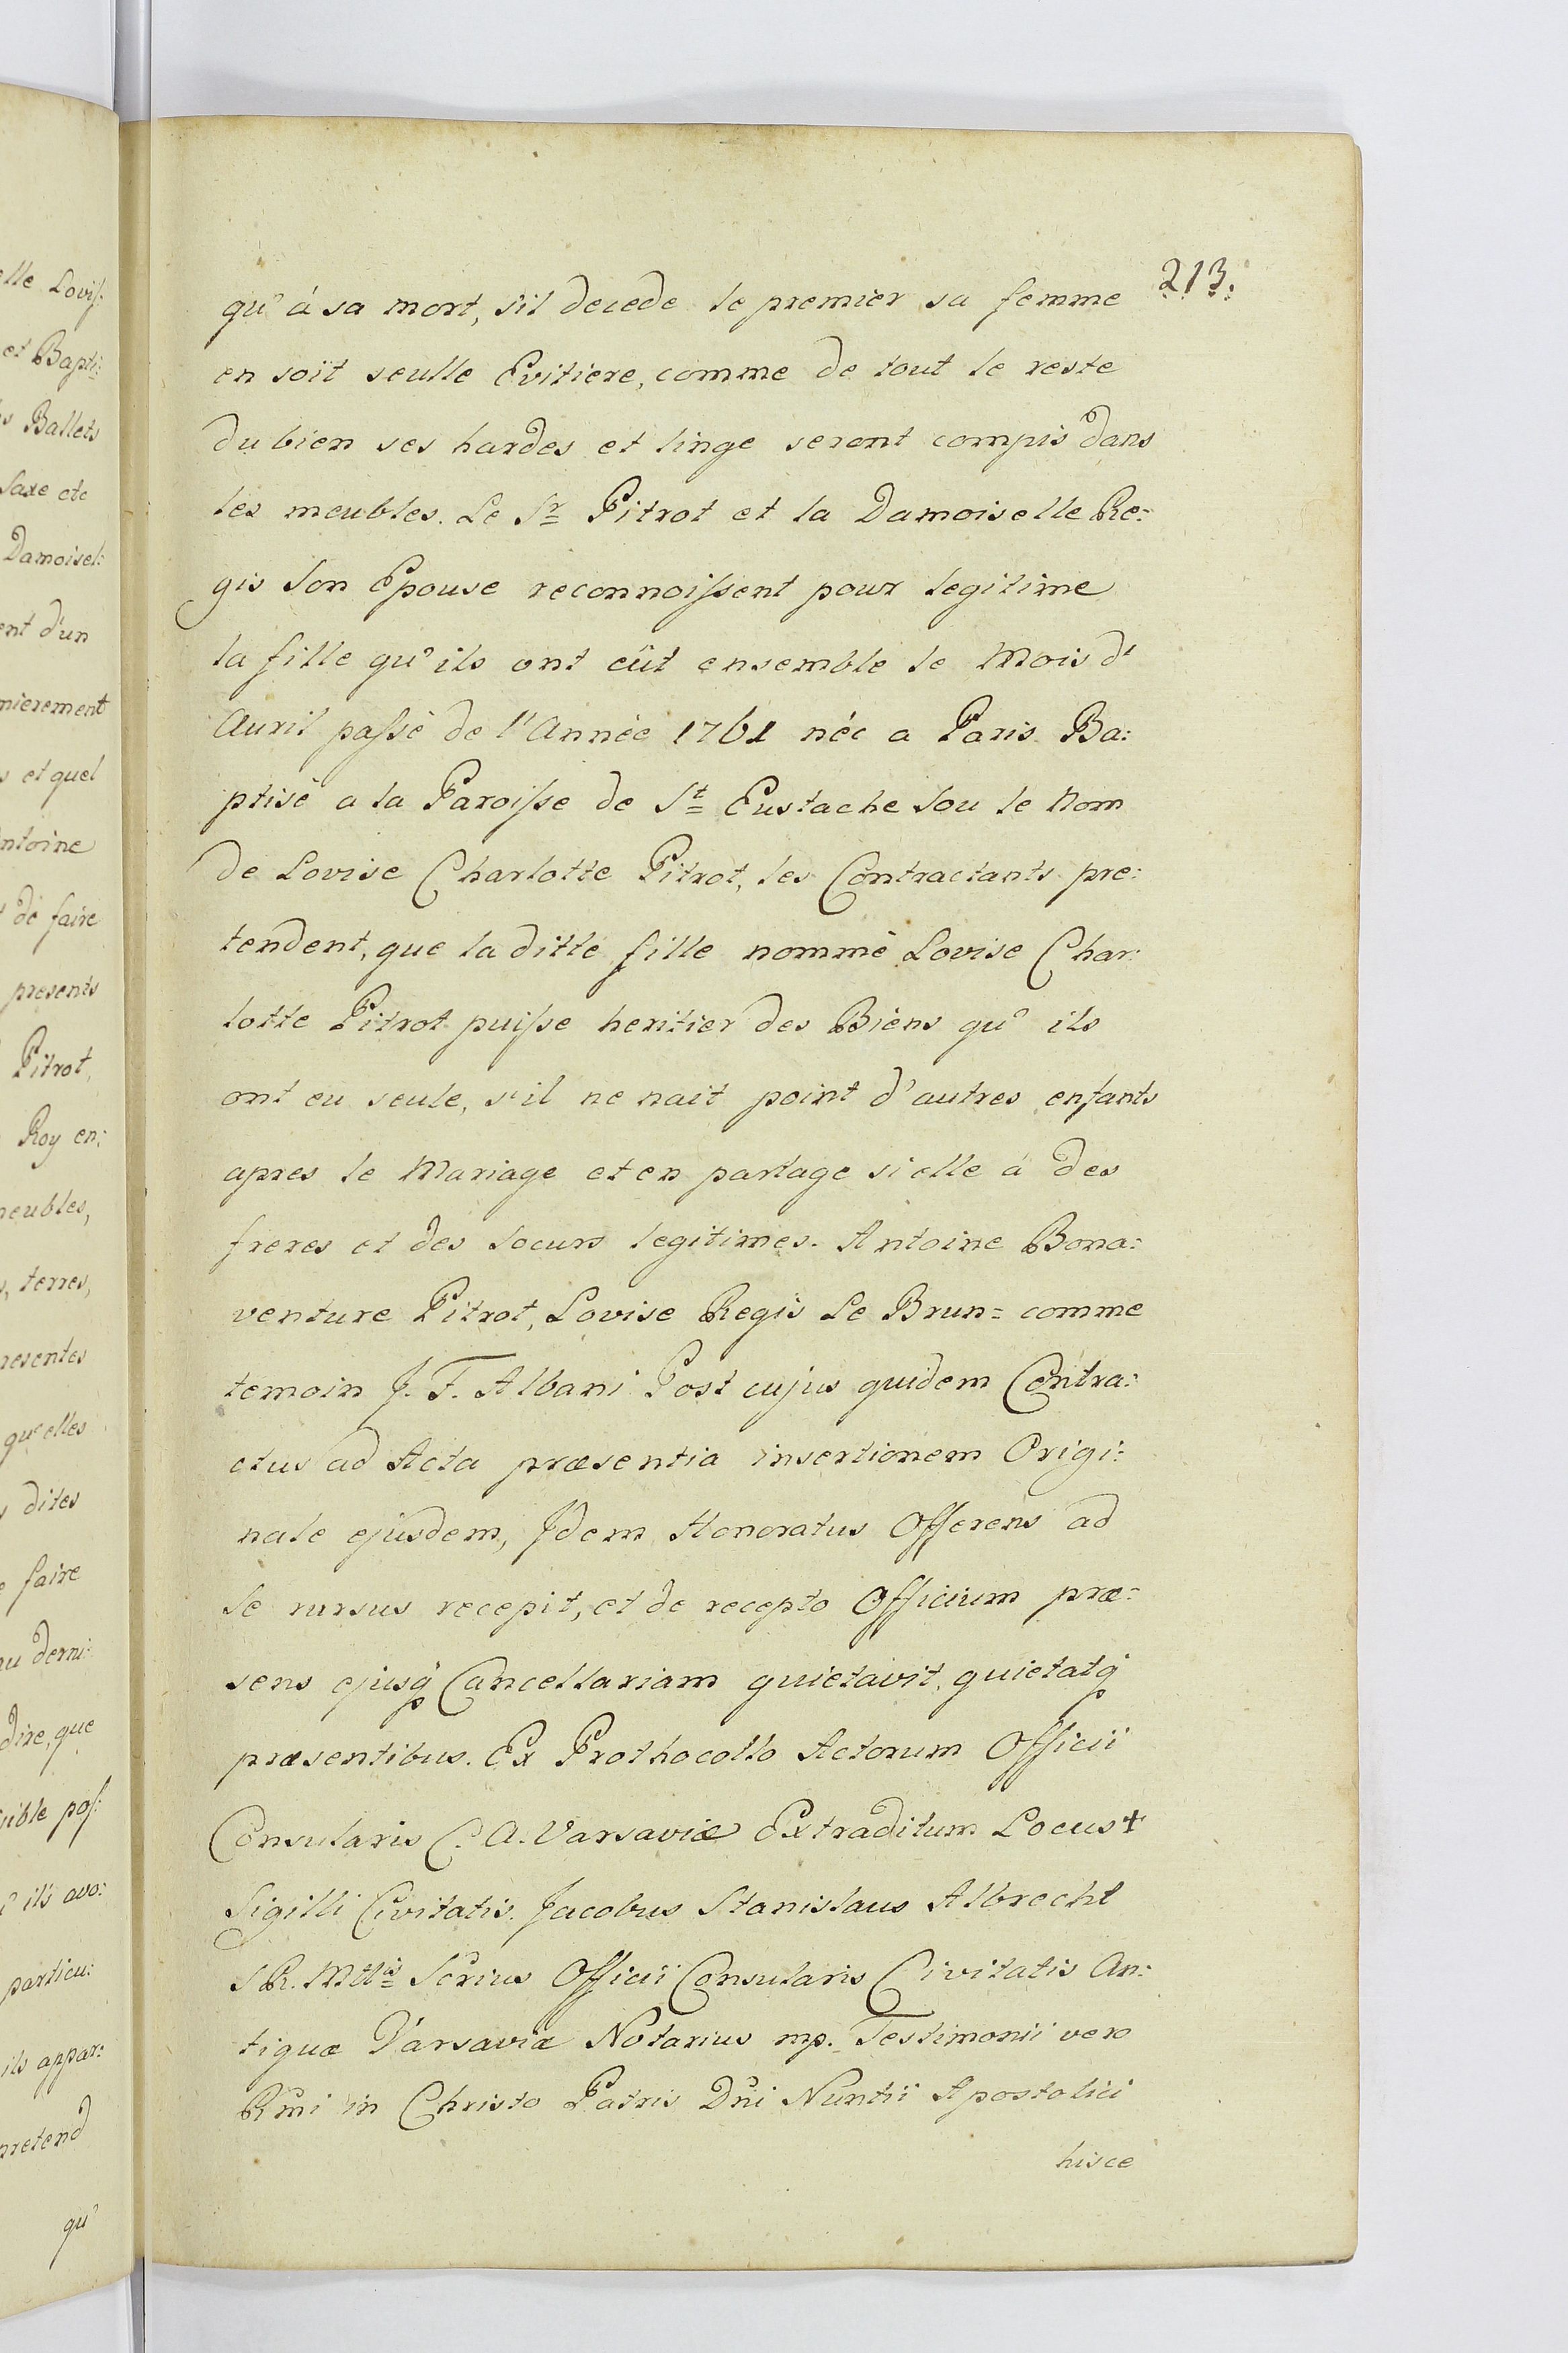 213.
qu' á sa mort, s'il decede le premier sa femme
en soit seulle Evitiere, comme de tout le reste
du bien ses hardes et linge seront compis dans
les meubles. Le Sr Pitrot et la Damoiselle Re:
gis Son Epouse reconnoissent pour legitime
la fille qu' ils ont eût ensemble le Mois d'
Auril passé de l' Année 1761 née a Paris Ba:
ptisè a la Paroisse de St Eustache sou le Nom
de Lovise Charlotte Pitrot, les Contractants pre:
tendent, que la ditte fille nommè Lovise Char:
lotte Pitrot puisse heritier des Biens qu' ils
ont eu seule, s'il ne nait point d'autres enfants
apres le Mariage et en partage si elle á des
freres et des soeurs legitimes. Antoine Bona:
venture Pitrot, Lovise Regis Le Brun = comme
temoin J. F. Albani Post cujus quidem Contra:
ctus ad Acta præsentia insertionem Origi:
nale ejusdem, Jdem Honoratus Offerens ad
se rursus recepit, et de recepto Officium præ:
sens ejusq Cancellariam quietavit, quietatq
præsentibus. Ex Prothocollo Actorum Officii
Consularis C. A. Varsaviæ Extraditum Locus +
Sigilli Civitatis. Jacobus Stanislaus Albrecht
S R. Mttis Scrius Officii Consularis Civitatis An:
tiquæ Varsaviæ Notarius mp. Testimonii vero
Rmi in Christo Patris Dni Nuntii Apostolici
hisce
elle Lovis:
et Bapti:
Ballets
Saxe etc
Damoisel:
ent d'un
mierement
et quel
Antoine
de faire
presents
Pitrot,
Roy en:
meubles,
terres,
presentes
qu'elles
dites
faire
au derni:
dire, que
sible pos:
ils avo:
particu:
ils appar:
pretend
qu'